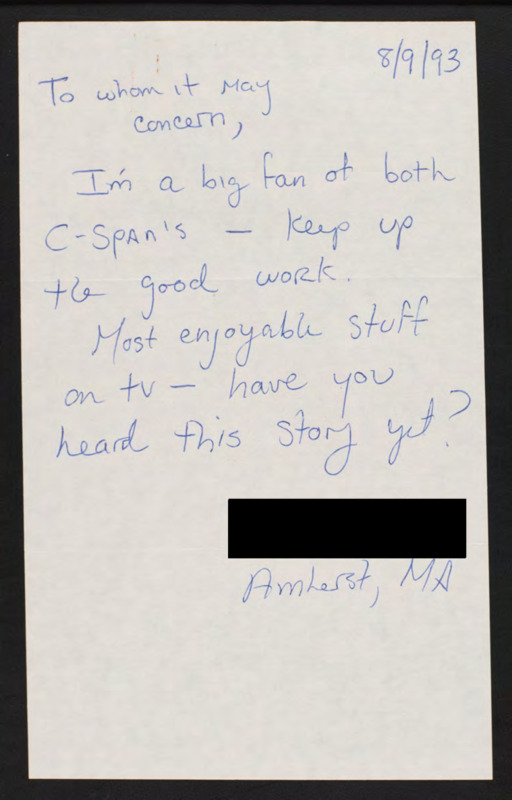 8/9/93
To whom it May
concern,
I'm a big fan of both
C-SPAN's — keep up
the good work.
Most enjoyable stuff
on tv — have you
heard this story yet?
Amherst, MA